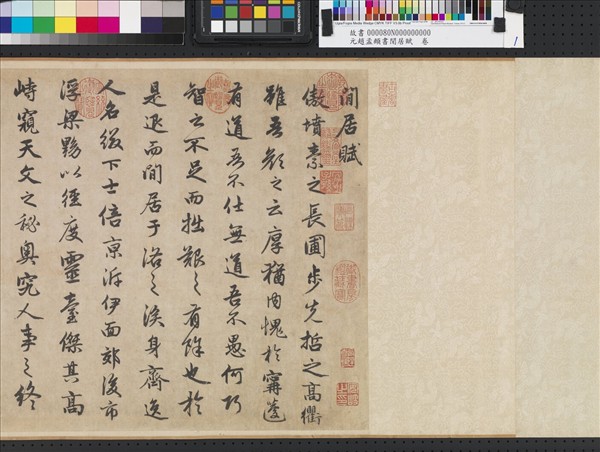 故書 000080N000000000
元趙孟頫書閒居賦 卷
閒居賦
傲墳素之長圃步先哲之高衢
雖吾顏之云厚猶内愧於甯蘧
有道吾不仕無道吾不愚何巧
智之不足而拙艱之有餘也於
是退而閒居于洛之涘身齊逸
人名綴下士倍京泝伊面郊後市
浮梁黝以徑度靈臺傑其高
峙窺天文之秘奧究人事之終